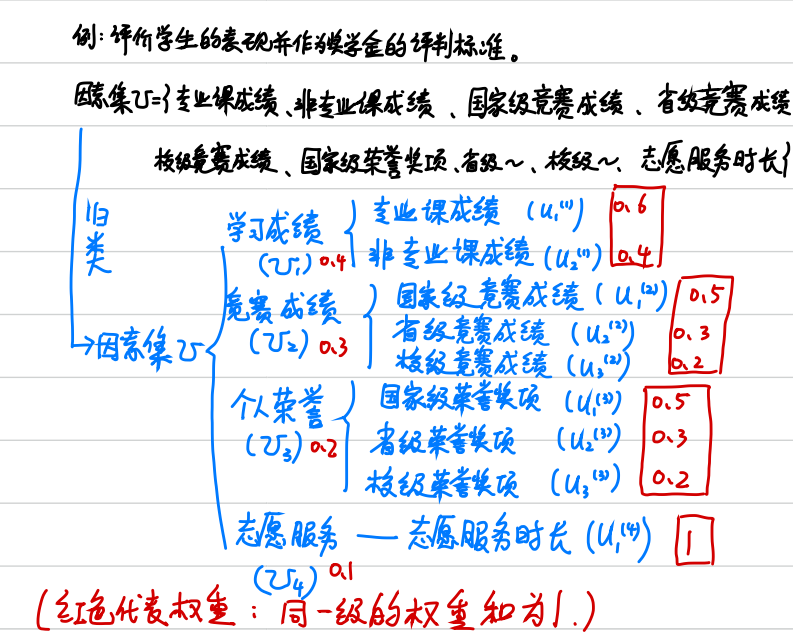 例:评价学生的表现并作为奖学金的评判标准。
因素集U={专业课成绩、非专业课成绩、国家级竞赛成绩、省级竞赛成绩
校级竞赛成绩、国家级荣誉奖项、省级~、校级~、志愿服务时长}
归类
因素集U
学习成绩 (U₁) 0.4
专业课成绩 (u₁⁽¹⁾) 0.6
非专业课成绩 (u₂⁽¹⁾) 0.4
竞赛成绩 (U₂) 0.3
国家级竞赛成绩 (u₁⁽²⁾) 0.5
省级竞赛成绩 (u₂⁽²⁾) 0.3
校级竞赛成绩 (u₃⁽²⁾) 0.2
个人荣誉 (U₃) 0.2
国家级荣誉奖项 (u₁⁽³⁾) 0.5
省级荣誉奖项 (u₂⁽³⁾) 0.3
校级荣誉奖项 (u₃⁽³⁾) 0.2
志愿服务 — 志愿服务时长 (u₁⁽⁴⁾) 1
(U₄) 0.1
(红色代表权重:同一级的权重和为1.)